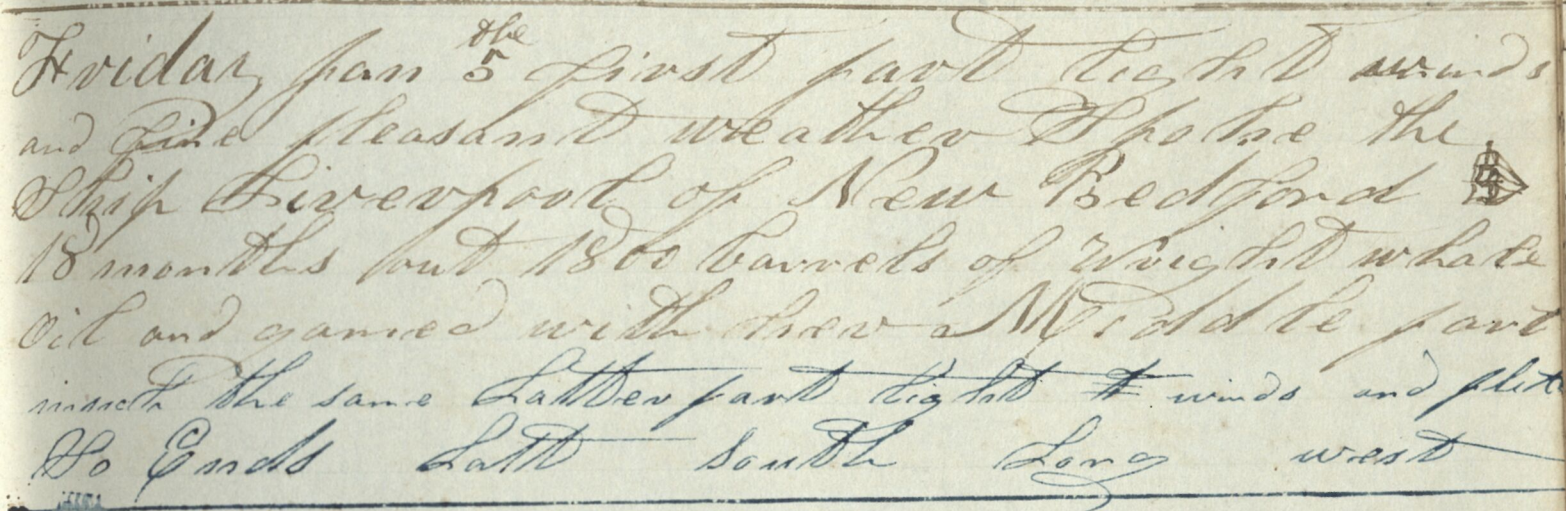 Friday Jan 5 the first part light winds
and fine pleasant weather Spoke the
Ship Liverpool of New Bedford
18 months out 1800 barrels of Wright whale
Oil and gamed with her Middle part
much the same Latter part light winds and
So Ends Latt South Long west